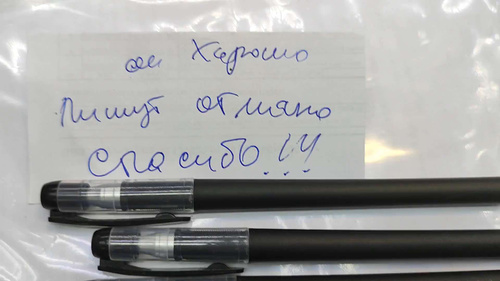 ои Хорошо
Пишут отлично
Спасибо!!!